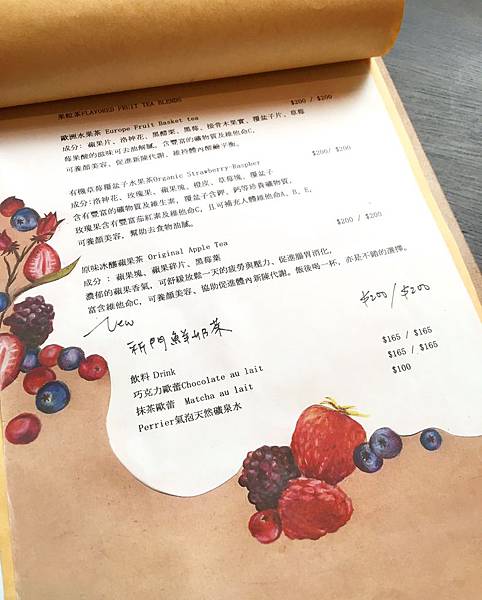 果粒茶FLAVORED FRUIT TEA BLENDS
歐洲水果茶 Europe Fruit Basket tea $200 / $200
成分: 蘋果片、洛神花、黑醋栗、黑莓、接骨木果實、覆盆子片、草莓
莓果酸的滋味可去油解膩。含豐富的礦物質及維他命C,
可養顏美容、促進新陳代謝、維持體內酸鹼平衡。
有機草莓覆盆子水果茶Organic Strawberry-Raspber $200/ $200
成分:洛神花、玫瑰果、蘋果塊、橙皮、草莓塊、覆盆子
含有豐富的礦物質及維生素,覆盆子含鉀、鈣等珍貴礦物質,
玫瑰果含有豐富茄紅素及維他命C,且可補充人體維他命A、B、E,
可養顏美容,幫助去食物油膩。
原味冰釀蘋果茶 Original Apple Tea $200 / $200
成分 : 蘋果塊、蘋果碎片、黑莓葉
濃郁的蘋果香氣,可舒緩放鬆一天的疲勞與壓力、促進腸胃消化,
富含維他命C,可養顏美容、協助促進體內新陳代謝。飯後喝一杯,亦是不錯的選擇。
New
新門鮮奶茶 $200 / $200
飲料 Drink
巧克力歐蕾Chocolate au lait $165 / $165
抹茶歐蕾 Matcha au lait $165 / $165
Perrier氣泡天然礦泉水 $100